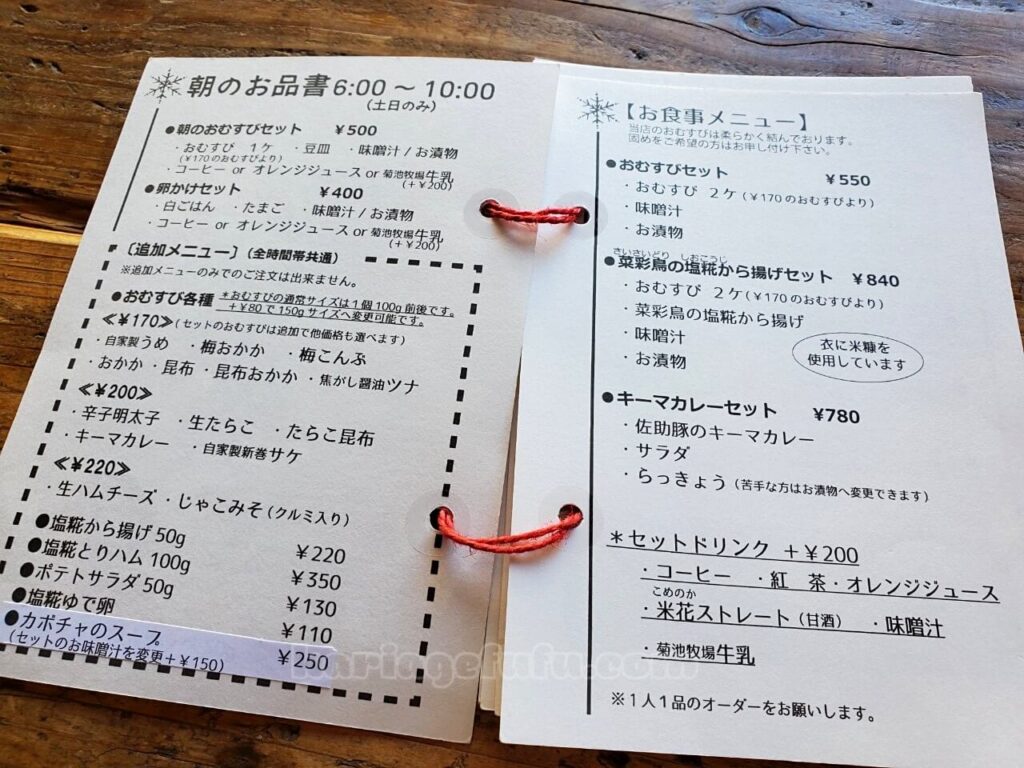 朝のお品書6:00～10:00
(土日のみ)
●朝のおむすびセット ￥500
・おむすび 1ケ ・豆皿 ・味噌汁/お漬物
(￥170のおむすびより)
・コーヒー or オレンジジュース or 菊池牧場牛乳
(+￥200)
●卵かけセット ￥400
・白ごはん ・たまご ・味噌汁/お漬物
・コーヒー or オレンジジュース or 菊池牧場牛乳
(+￥200)
〔追加メニュー〕(全時間帯共通)
※追加メニューのみでのご注文は出来ません。
●おむすび各種 *おむすびの通常サイズは1個100g前後です。
+￥80で150gサイズへ変更可能です。
≪￥170≫(セットのおむすびは追加で他価格も選べます)
・自家製うめ ・梅おかか ・梅こんぶ
・おかか ・昆布 ・昆布おかか ・焦がし醤油ツナ
≪￥200≫
・辛子明太子 ・生たらこ ・たらこ昆布
・キーマカレー ・自家製新巻サケ
≪￥220≫
・生ハムチーズ ・じゃこみそ(クルミ入り)
●塩糀から揚げ50g ￥220
●塩糀とりハム 100g ￥350
●ポテトサラダ50g ￥130
●塩糀ゆで卵 ￥110
●カボチャのスープ ￥250
(セットのお味噌汁を変更+￥150)
【お食事メニュー】
当店のおむすびは柔らかく結んでおります。
固めをご希望の方はお申し付け下さい。
●おむすびセット ￥550
・おむすび 2ケ(￥170のおむすびより)
・味噌汁
・お漬物
さいさいどり しおこうじ
●菜彩鳥の塩糀から揚げセット ￥840
・おむすび 2ケ(￥170のおむすびより)
・菜彩鳥の塩糀から揚げ
・味噌汁
・お漬物
衣に米糠を
使用しています
●キーマカレーセット ￥780
・佐助豚のキーマカレー
・サラダ
・らっきょう(苦手な方はお漬物へ変更できます)
*セットドリンク +￥200
・コーヒー ・紅 茶・オレンジジュース
こめのか
・米花ストレート(甘酒) ・味噌汁
・菊池牧場牛乳
※1人1品のオーダーをお願いします。
mariagefufu.com